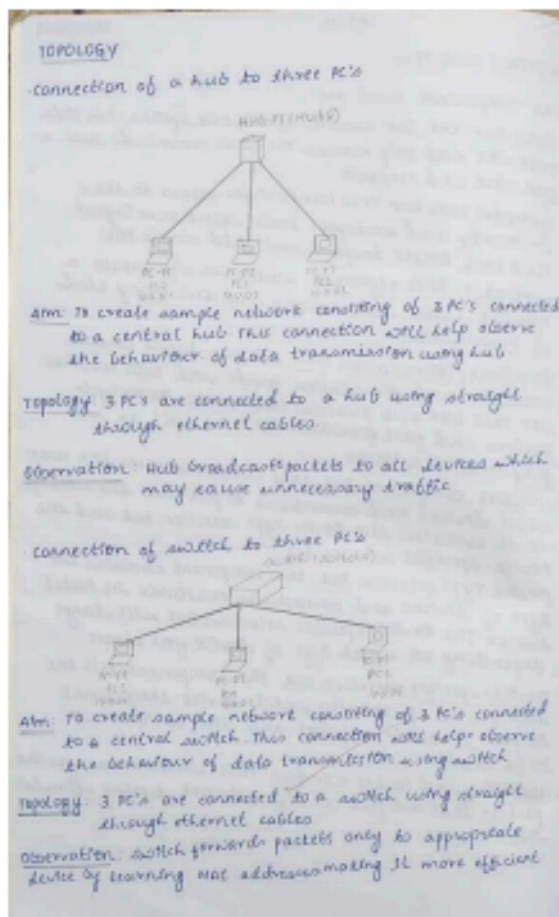 TOPOLOGY
connection of a hub to three PC's
HUB-PT (HUB0)
PC-PT
PC-PT
PC-PT
Aim: To create sample network consisting of 3 PC's connected
to a central hub This connection will help observe
the behaviour of data transmission using hub
Topology: 3 PC's are connected to a hub using straight
through ethernet cables.
Observation: Hub broadcasts packets to all devices which
may cause unnecessary traffic
connection of switch to three PC's
PC-PT
PC-PT
PC-PT
Aim: To create sample network consisting of 3 PC's connected
to a central switch. This connection will help observe
the behaviour of data transmission using switch
Topology: 3 PC's are connected to a switch using straight
through ethernet cables
Observation: switch forwards packets only to appropriate
device by learning MAC addresses making it more efficient